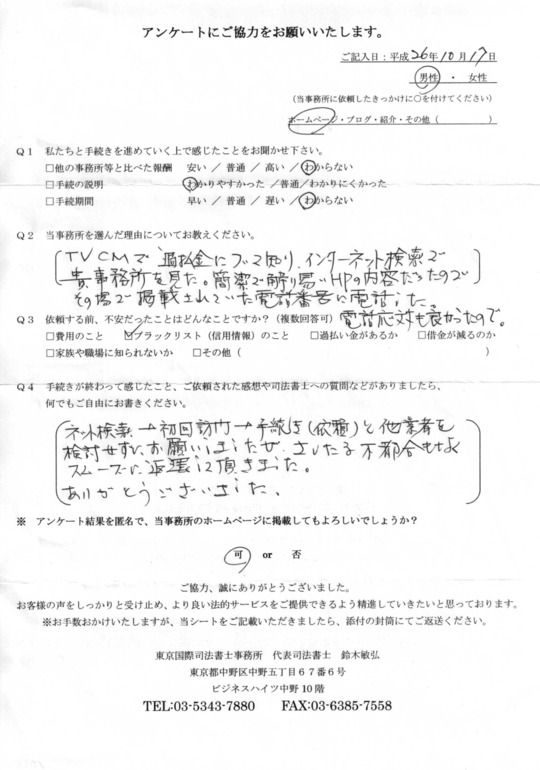 アンケートにご協力をお願いいたします。
ご記入日:平成26年10月17日
男性 ・ 女性
(当事務所に依頼したきっかけに○を付けてください)
ホームページ・ブログ・紹介・その他( )
Q1 私たちと手続きを進めていく上で感じたことをお聞かせ下さい。
□他の事務所等と比べた報酬 安い / 普通 / 高い / わからない
□手続の説明 わかりやすかった / 普通 / わかりにくかった
□手続期間 早い / 普通 / 遅い / わからない
Q2 当事務所を選んだ理由についてお教えください。
TVCMで過払金について知り、インターネット検索で
貴事務所を見た。簡潔で解り易いHPの内容だったので
その場で掲載されていた電話番号に電話した。
電話応対も良かったので。
Q3 依頼する前、不安だったことはどんなことですか?(複数回答可)
□費用のこと ☑ブラックリスト(信用情報)のこと □過払い金があるか □借金が減るのか
□家族や職場に知られないか □その他( )
Q4 手続きが終わって感じたこと、ご依頼された感想や司法書士への質問などがありましたら、
何でもご自由にお書きください。
ネット検索→初回訪問→手続き(依頼)と他業者を
検討せずにお願いしましたが、さしたる不都合もなく
スムーズに返還して頂きました。
ありがとうございました。
※ アンケート結果を匿名で、当事務所のホームページに掲載してもよろしいでしょうか?
可 or 否
ご協力、誠にありがとうございました。
お客様の声をしっかりと受け止め、より良い法的サービスをご提供できるよう精進していきたいと思っております。
※お手数おかけいたしますが、当シートをご記載いただきましたら、添付の封筒にてご返送ください。
東京国際司法書士事務所 代表司法書士 鈴木敏弘
東京都中野区中野五丁目67番6号
ビジネスハイツ中野10階
TEL:03-5343-7880 FAX:03-6385-7558